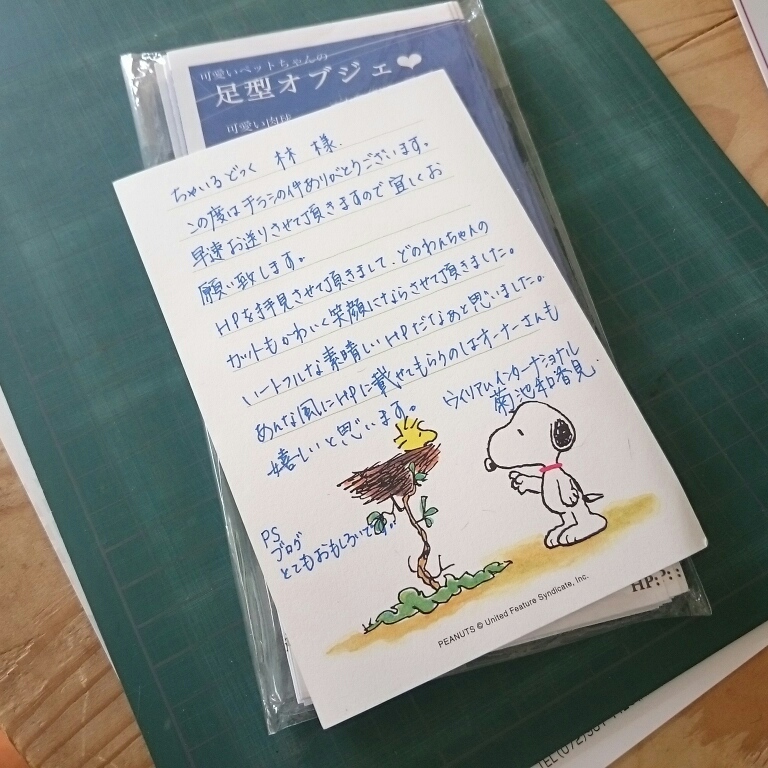 可愛いペットちゃんの
足型オブジェ♥
可愛い肉球
ちゃいるどっく 林 様.
この度はチラシの件ありがとうございます。
早速お送りさせて頂きますので宜しくお
願い致します。
HPを拝見させて頂きまして、どのわんちゃんの
カットもかわいく笑顔にならさせて頂きました。
ハートフルな素晴しいHPだなあと思いました。
あんな風にHPに載せてもらうのはオーナーさんも
嬉しいと思います。
ウイリアムインターナショナル
菊池和香見.
PS
ブログ
とてもおもしろいです。
PEANUTS © United Feature Syndicate, Inc.
HP:
TEL(072)